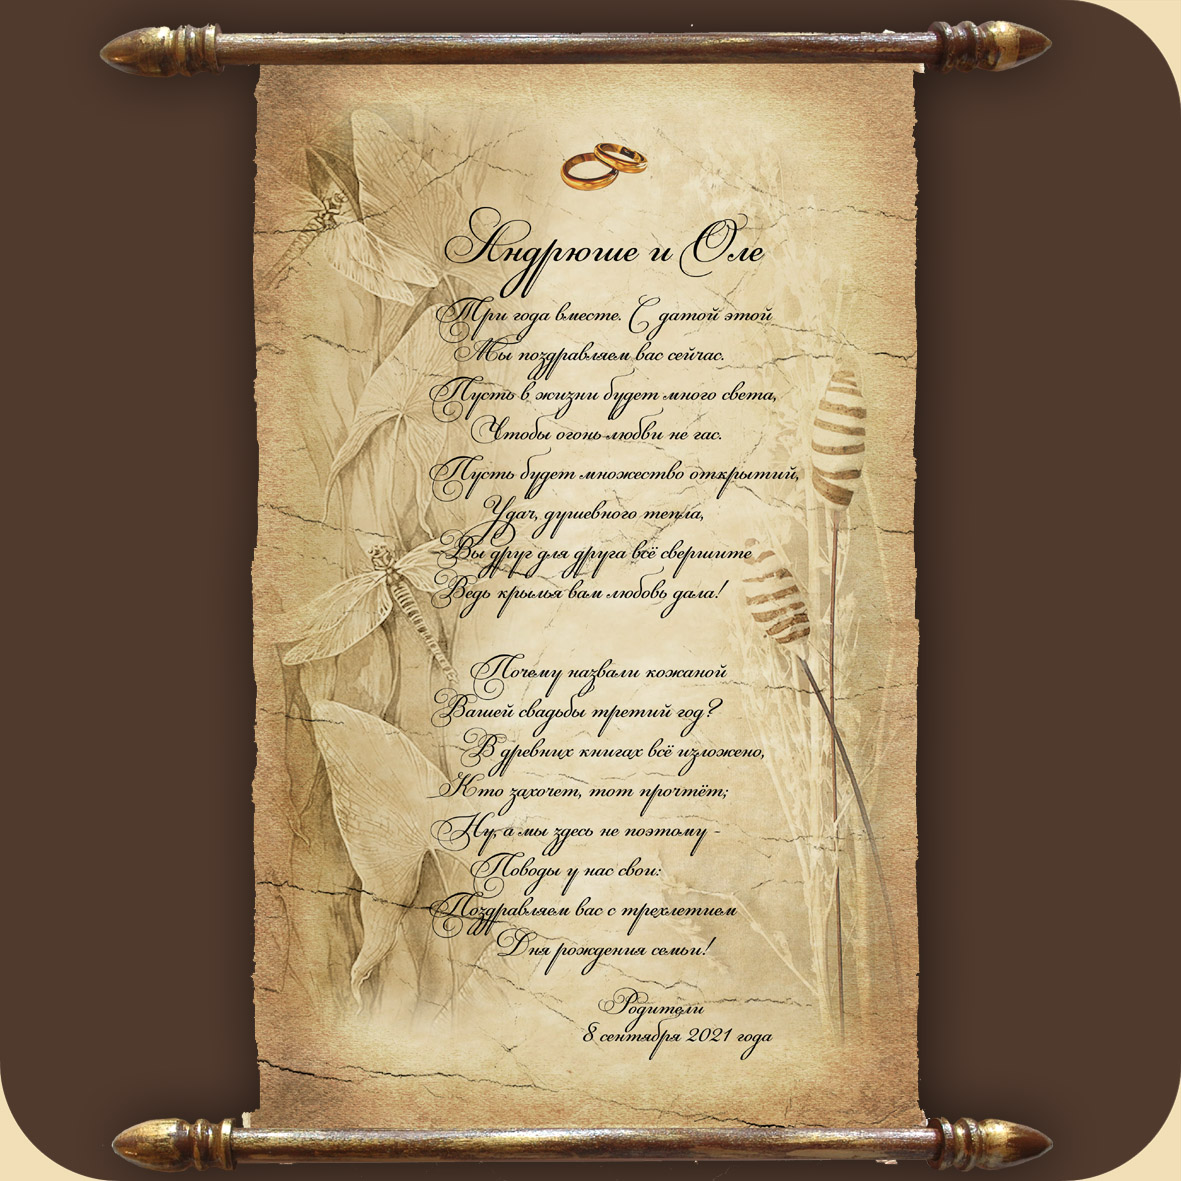 Андрюше и Оле
Три года вместе. С датой этой
Мы поздравляем вас сейчас.
Пусть в жизни будет много света,
Чтобы огонь любви не гас.
Пусть будет множество открытий,
Удач, душевного тепла,
Вы друг для друга всё свершите
Ведь крылья вам любовь дала!
Почему назвали кожаной
Вашей свадьбы третий год?
В древних книгах всё изложено,
Кто захочет, тот прочтёт;
Ну, а мы здесь не поэтому -
Поводы у нас свои:
Поздравляем вас с трехлетием
Дня рождения семьи!
Родители
8 сентября 2021 года